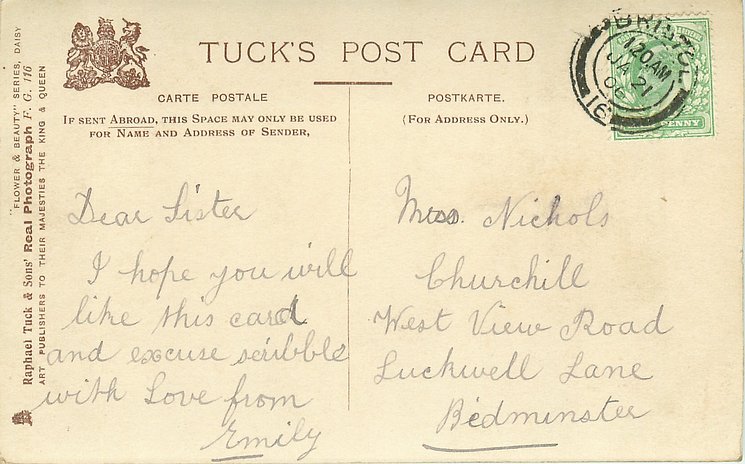 TUCK'S POST CARD
CARTE POSTALE
IF SENT ABROAD, THIS SPACE MAY ONLY BE USED
FOR NAME AND ADDRESS OF SENDER,
POSTKARTE.
(FOR ADDRESS ONLY.)
BRISTOL
120AM
JA 21
06
16
PENNY
"FLOWER & BEAUTY" SERIES, DAISY
Raphael Tuck & Sons' Real Photograph F. G. 116
ART PUBLISHERS TO THEIR MAJESTIES THE KING & QUEEN
Dear Sister
I hope you will
like this card
and excuse scribble
with Love from
Emily
Mrs. Nichols
Churchill
West View Road
Luckwell Lane
Bedminster